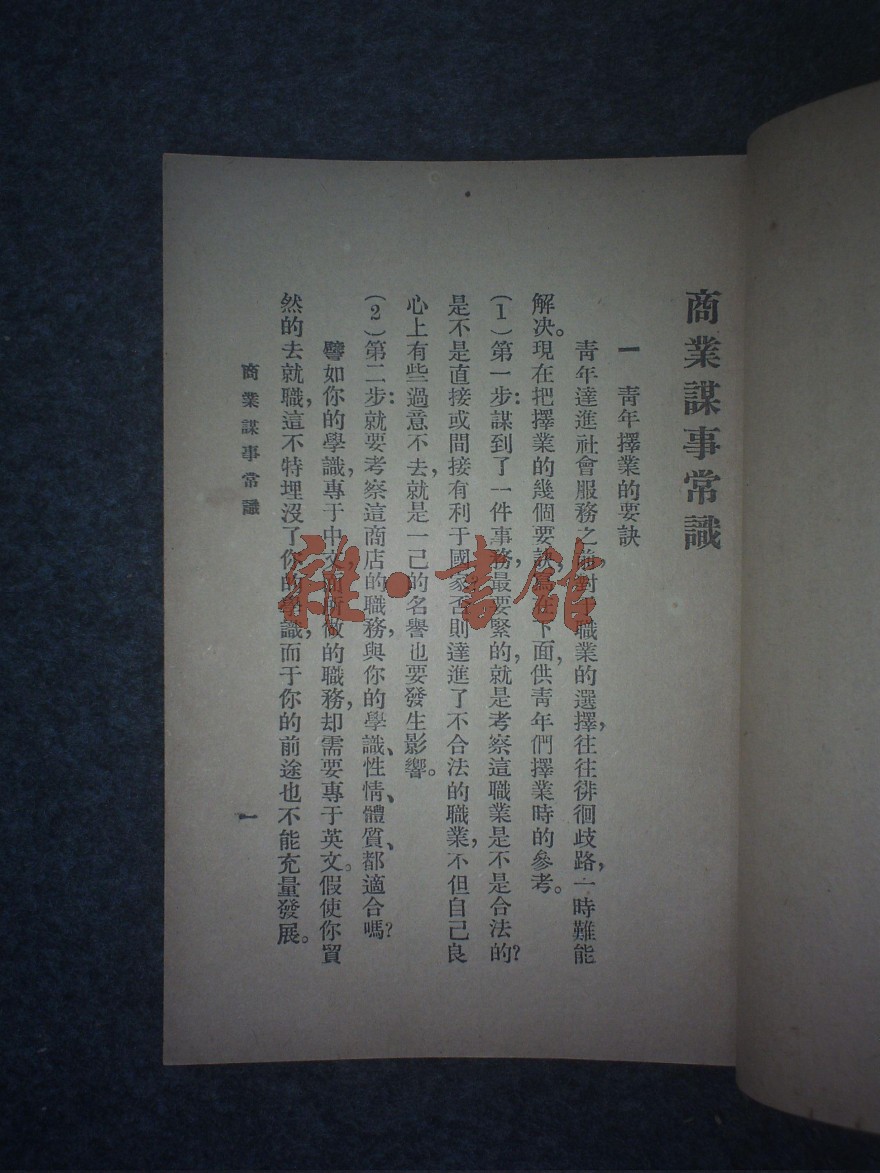 商業謀事常識
一 青年擇業的要訣
青年達進社會服務之前對于職業的選擇，往往徘徊歧路，一時難能
解决。現在把擇業的幾個要訣，寫在下面，供青年們擇業時的參考。
(1)第一步：謀到了一件事務，最要緊的，就是考察這職業是不是合法的？
是不是直接或間接有利于國家否則達進了不合法的職業，不但自己良
心上有些過意不去，就是一己的名譽也要發生影響。
(2)第二步：就要考察這商店的職務，與你的學識、性情、體質、都適合嗎？
譬如你的學識，專于中文而所做的職務，却需要專于英文。假使你貿
然的去就職，這不特埋沒了你的學識，而于你的前途也不能充量發展。
商業謀事常識
一
雜·書館